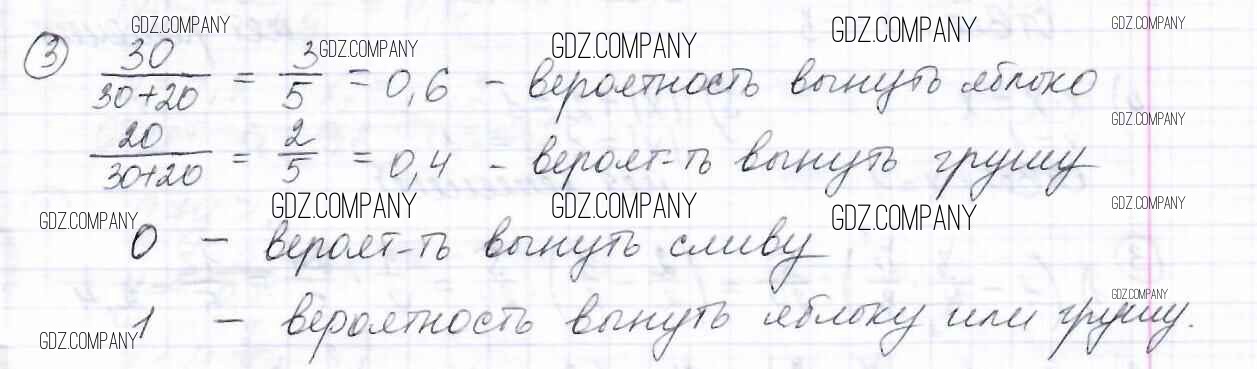 GDZ.COMPANY GDZ.COMPANY GDZ.COMPANY GDZ.COMPANY GDZ.COMPANY
③ 30/(30+20) = 3/5 = 0,6 – вероятность вынуть яблоко
GDZ.COMPANY
20/(30+20) = 2/5 = 0,4 – вероят-ть вынуть грушу
GDZ.COMPANY GDZ.COMPANY GDZ.COMPANY GDZ.COMPANY GDZ.COMPANY
0 – вероят-ть вынуть сливу
GDZ.COMPANY
1 – вероятность вынуть яблоку или грушу.
GDZ.COMPANY